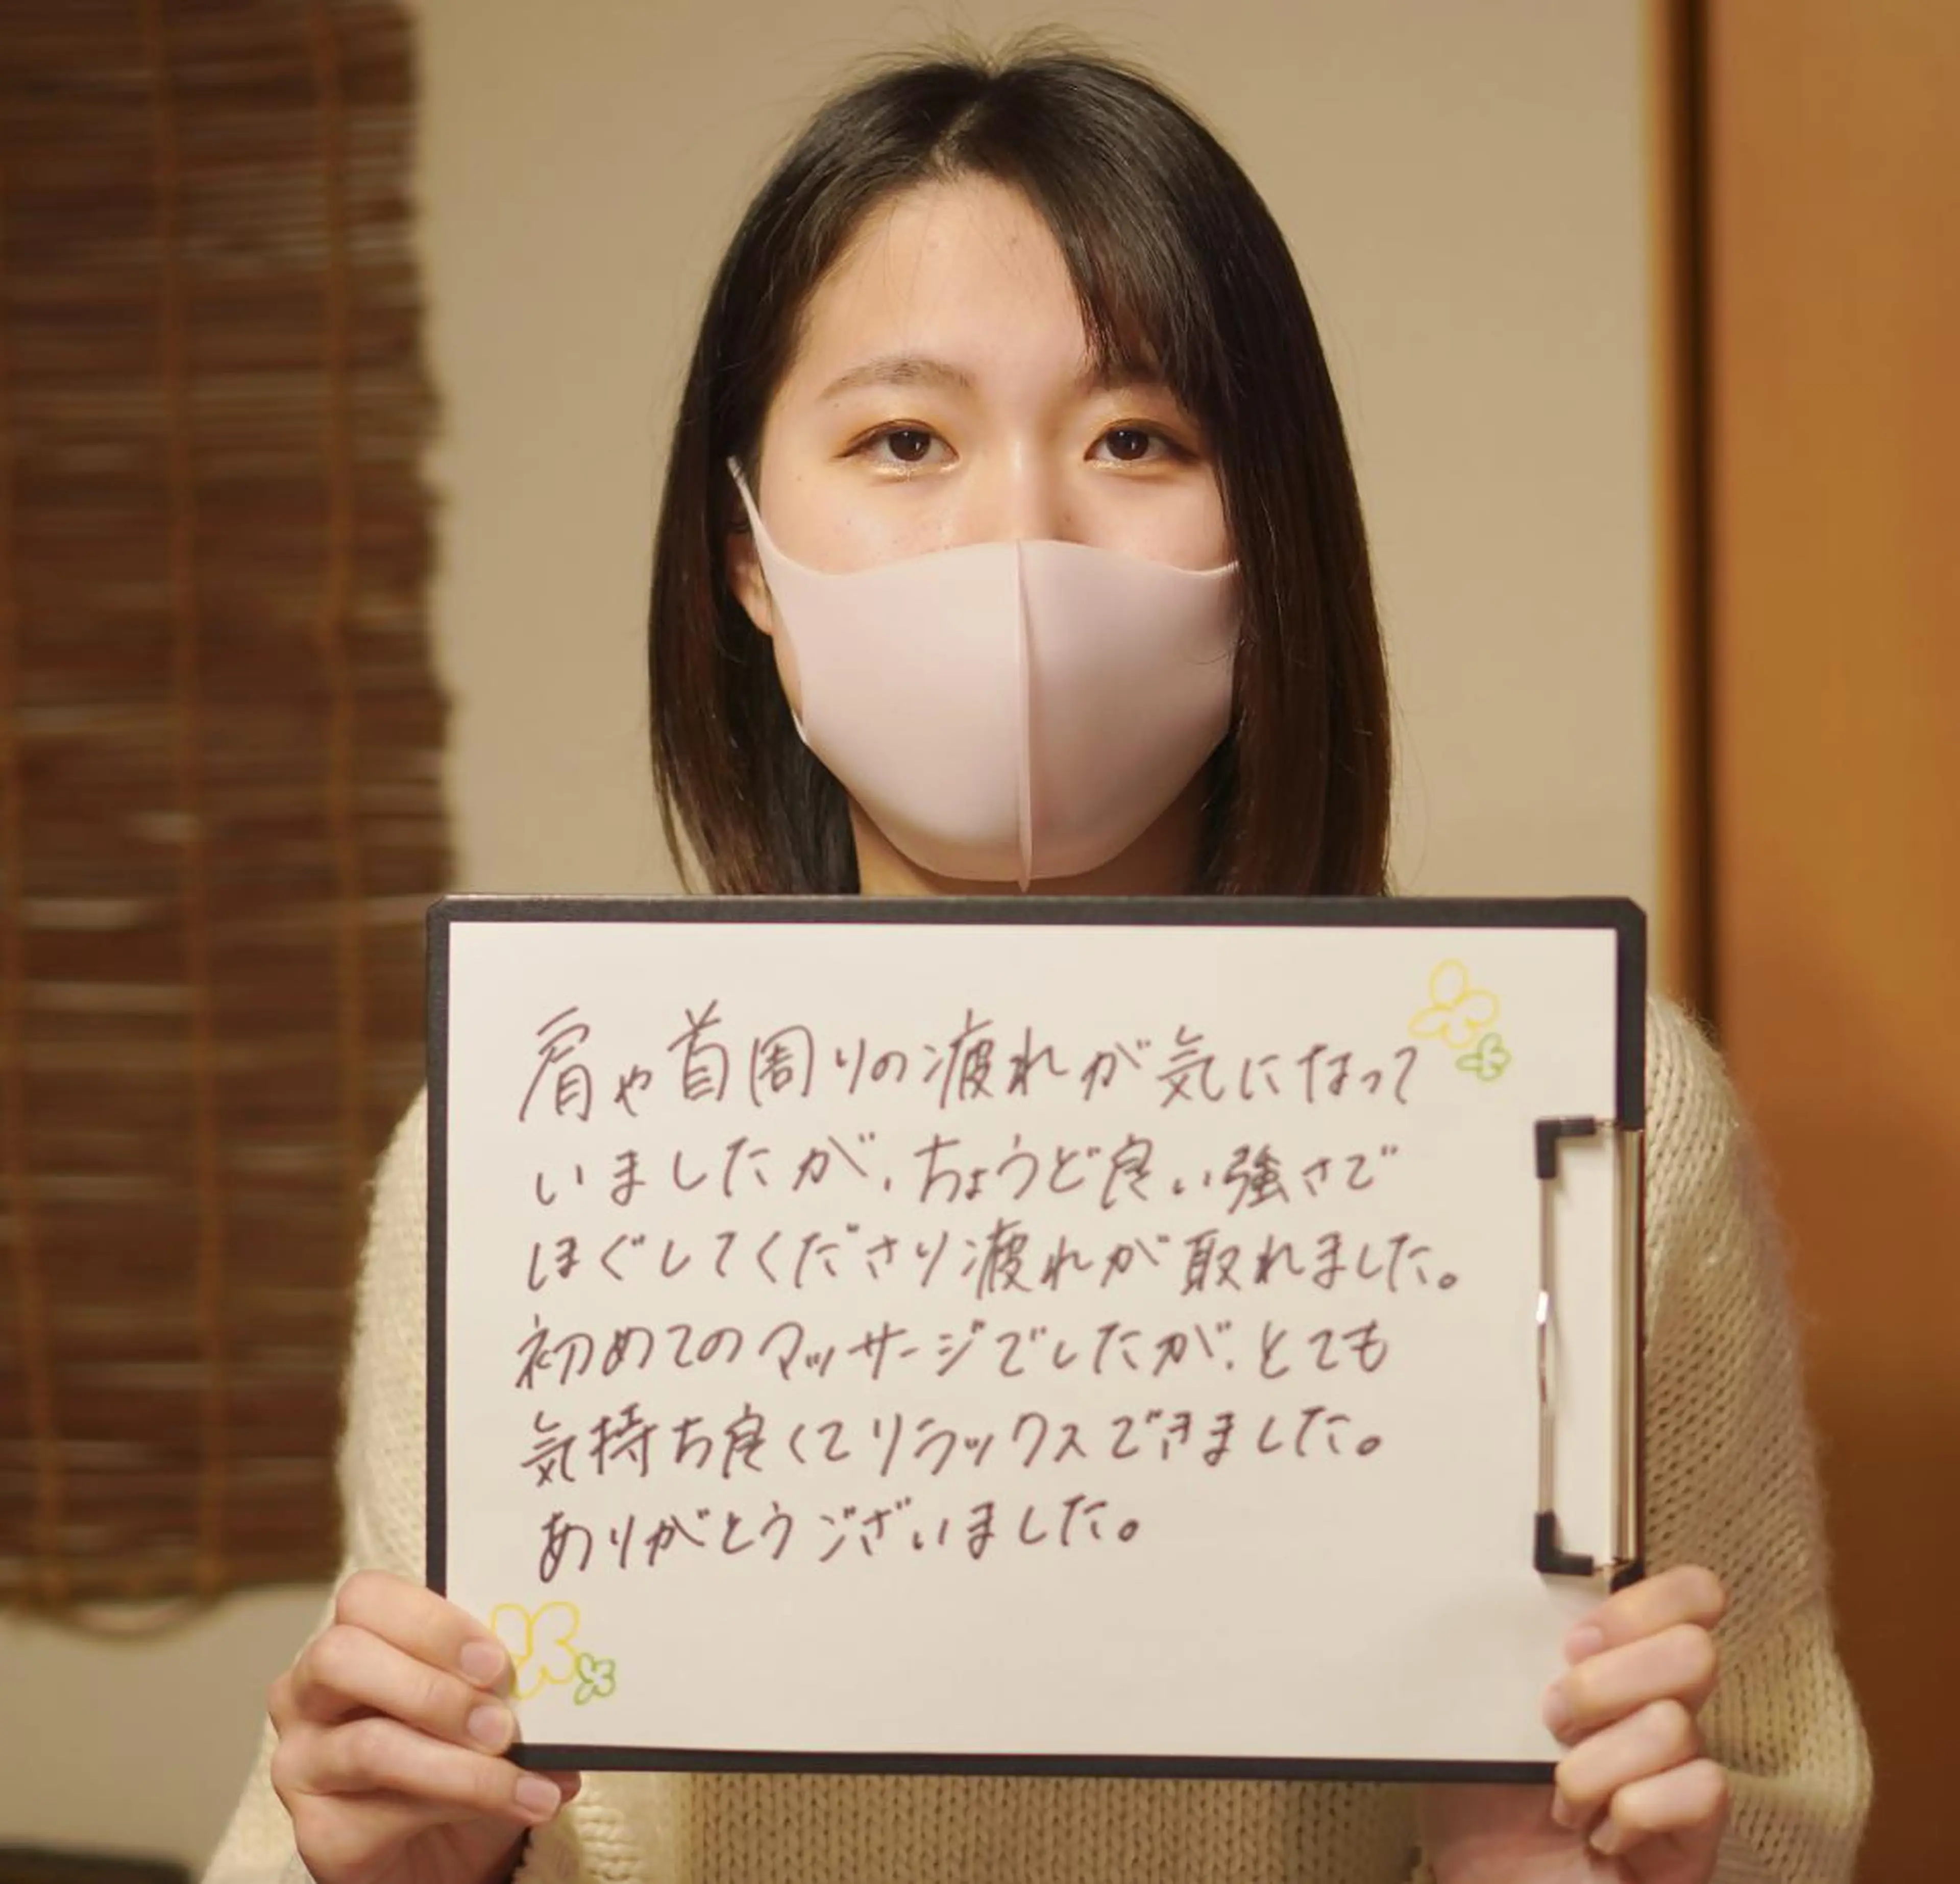 肩や首周りの疲れが気になって
いましたが、ちょうど良い強さで
ほぐしてくださり疲れが取れました。
初めてのマッサージでしたが、とても
気持ち良くてリラックスできました。
ありがとうございました。